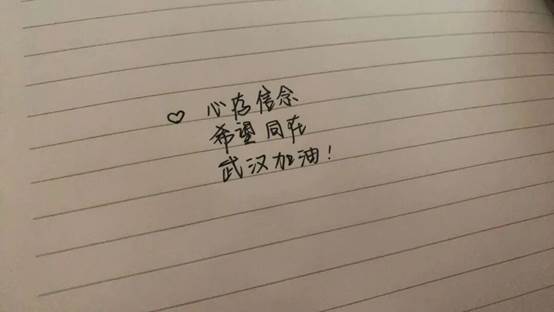 ♡ 心存信念
希望同在
武汉加油!